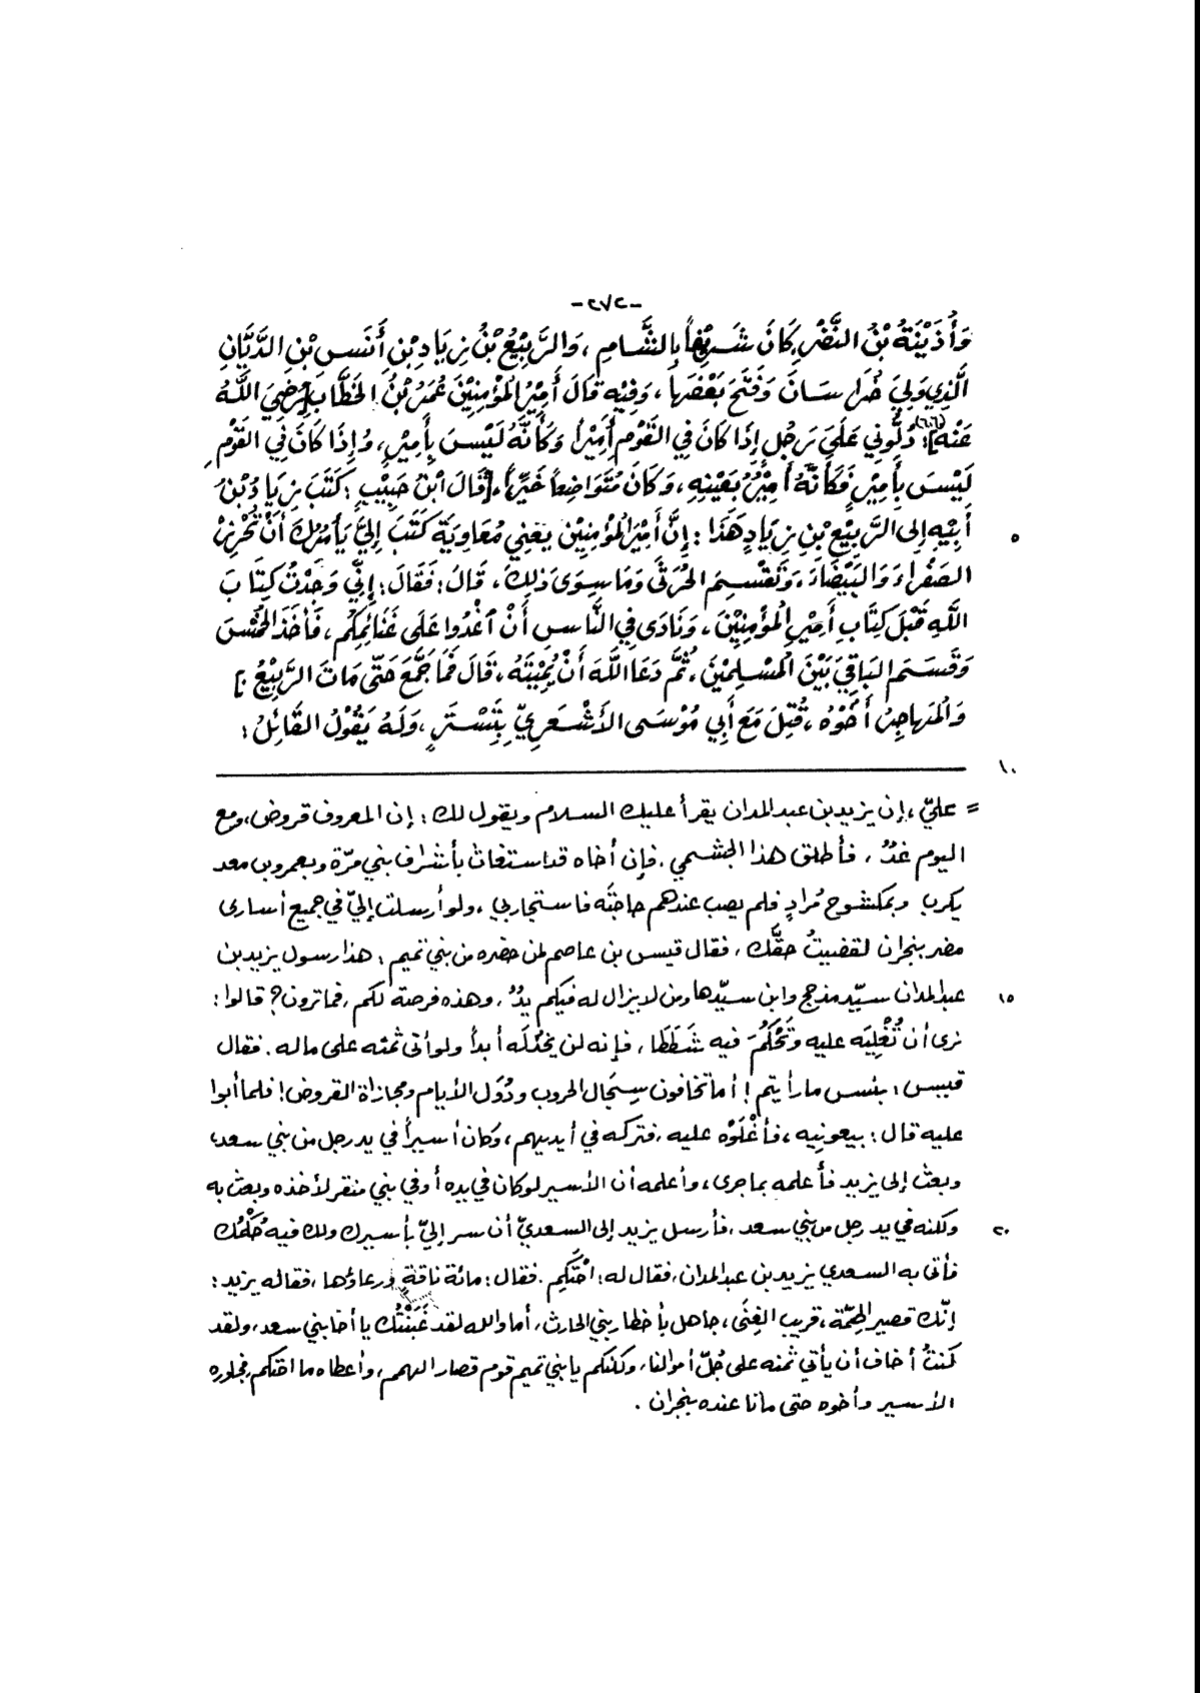 -٢٧٢-
وَأُذَيْنَةُ بْنُ النَّضْرِ، كَانَ شَرِيْفاً بِالشَّامِ، وَالرَّبِيْعُ بْنُ زِيَادِ بْنِ أَنَسِ بْنِ الدَّيَّانِ
الَّذِي وَلِيَ خُرَاسَانَ وَفَتَحَ بَعْضَهَا، وَفِيْهِ قَالَ أَمِيْرُ المُؤْمِنِيْنَ عُمَرُ بْنُ الخَطَّابِ [رَضِيَ اللَّهُ
عَنْهُ]: دُلُّونِي عَلَى رَجُلٍ إِذَا كَانَ فِي القَوْمِ أَمِيْراً وَكَأَنَّهُ لَيْسَ بِأَمِيْرٍ، وَإِذَا كَانَ فِي القَوْمِ
لَيْسَ بِأَمِيْرٍ فَكَأَنَّهُ أَمِيْرٌ بِعَيْنِهِ، وَكَانَ مُتَوَاضِعاً خَيِّراً، [قَالَ ابْنُ حَبِيْبٍ: كَتَبَ زِيَادُ بْنُ
أَبِيْهِ إِلى الرَّبِيْعِ بْنِ زِيَادٍ هَذَا: إِنَّ أَمِيْرَ المُؤْمِنِيْنَ يَعْنِي مُعَاوِيَةَ كَتَبَ إِليَّ يَأْمُرُكَ أَنْ تُحْرِزَ
٥
الصَّفْرَاءَ وَالبَيْضَاءَ، وَتَقْسِمَ الخُرْثَى وَمَا سِوَى ذَلِكَ، قَالَ: فَقَالَ: إِنِّي وَجَدْتُ كِتَابَ
اللَّهِ قَبْلَ كِتَابِ أَمِيْرِ المُؤْمِنِيْنَ، وَنَادَى فِي النَّاسِ أَنْ اغْدُوا عَلَى غَنَائِمِكُم، فَأَخَذَ الخُمْسَ
وَقَسَمَ البَاقِيَ بَيْنَ المُسْلِمِيْنَ، ثُمَّ دَعَا اللَّهَ أَنْ يُمِيْتَهُ، قَالَ فَمَا جَمَّعَ حَتَّى مَاتَ الرَّبِيْعُ]
وَالمُهَاجِرُ أَخُوْهُ، قُتِلَ مَعَ أَبِي مُوْسَى الأَشْعَرِيِّ بِتُسْتَرٍ، وَلَهُ يَقُوْلُ القَائِلُ:
١٠
= عليّ، إن يزيد بن عبد المدان يقرأ عليك السلام ويقول لك: إن المعروف قروض، ومع
اليوم غدٌ، فأطلق هذا الجشمي، فإن أخاه قد استغاث بأشراف بني مرّة وبعمرو بن معد
يكرب وبمكشوح مُرادٍ فلم يصب عندهم حاجتَه فاستجار بي، ولو أرسلت إليّ في جميع أسارى
مضر بنجران لقضيتُ حقّك، فقال قيس بن عاصم لمن حضره من بني تميم: هذا رسول يزيد بن
عبد المدان سيّد مذحج وابن سيّدها ومن لا يزال له فيكم يدٌ، وهذه فرصة لكم، فما ترون؟ قالوا:
١٥
نرى أن نُغْلِيَه عليه وتَحْكُمَ فيه شَطَطَا، فإنه لن يخذله أبداً ولو أتى ثمنه على ماله. فقال
قيس: بئس ما رأيتم! أما تخافون سِجَال الحروب ودُوَل الأيام ومجازاة القروض! فلما أبوا
عليه قال: بيعونيه، فأغْلَوْه عليه، فتركه في أيديهم، وكان أسيراً في يد رجل من بني سعد،
وبعث إلى يزيد فأعلمه بما جرى، وأعلمه أن الأسير لو كان في يده أو في بني منقر لأخذه وبعث به
ولكنه في يد رجل من بني سعد، فأرسل يزيد إلى السعديّ أن سر إليّ بأسيرك ولك فيه حُكْمُك
٢٠
فأتى به السعدي يزيد بن عبد المدان، فقال له: احْتَكِم. فقال: مائة ناقةٍ ورعاؤها، فقال له يزيد:
إنّك قصير الهِمّة، قريب الغِنَى، جاهل بأخطار بني الحارث، أما والله لقد غَبَنْتُك يا أخا بني سعد، ولقد
كنتُ أخاف أن يأتي ثمنه على جُلّ أموالنا، ولكنكم يا بني تميم قوم قصار الهمم، وأعطاه ما احتكم، فجاوره
الأسير وأخوه حتى ماتا عنده بنجران.